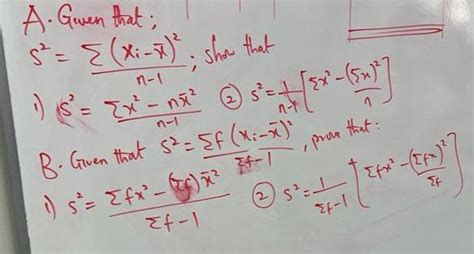 A. Given that;
s² = Σ(xᵢ-x̄)²/n-1 ; show that
1) s² = Σx² - nx̄²/n-1 ② s² = 1/n-1 [Σx² - (Σx)²/n]
B. Given that s² = Σf(xᵢ-x̄)²/Σf-1, prove that:
1) s² = Σfx² - (Σf)x̄²/Σf-1 ② s² = 1/Σf-1 [Σfx² - (Σfx)²/Σf]